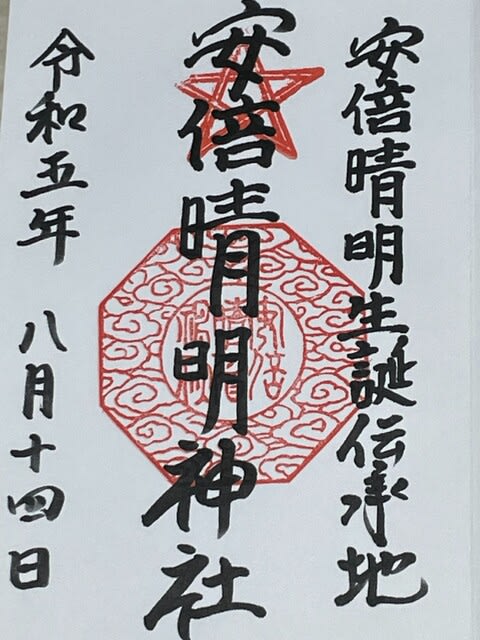 安倍晴明生誕伝承地
安倍晴明神社
令和五年 八月十四日